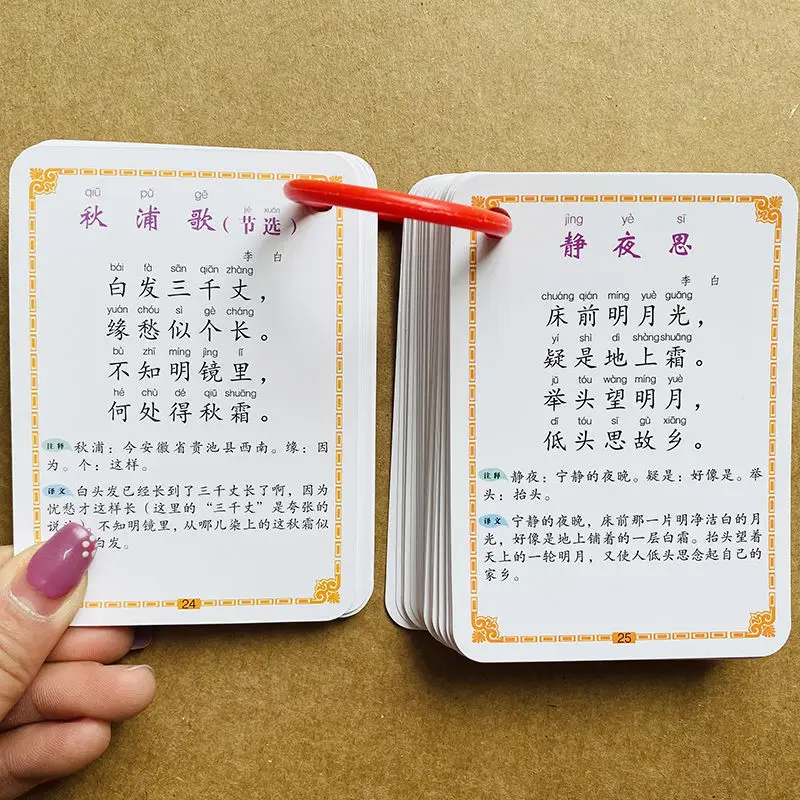 qiū pǔ gē jié xuǎn
秋浦歌(节选)
李白
bái fà sān qiān zhàng
白发三千丈，
yuán chóu sì gè cháng
缘愁似个长。
bù zhī míng jìng lǐ
不知明镜里，
hé chù dé qiū shuāng
何处得秋霜。
注释 秋浦：今安徽省贵池县西南。缘：因
为。个：这样。
译文 白头发已经长到了三千丈长了啊，因为
忧愁才这样长（这里的“三千丈”是夸张的
说法）。不知明镜里，从哪儿染上的这秋霜似
白发。
24
jìng yè sī
静夜思
李白
chuáng qián míng yuè guāng
床前明月光，
yí shì dì shàng shuāng
疑是地上霜。
jǔ tóu wàng míng yuè
举头望明月，
dī tóu sī gù xiāng
低头思故乡。
注释 静夜：宁静的夜晚。疑是：好像是。举
头：抬头。
译文 宁静的夜晚，床前那一片明净洁白的月
光，好像是地上铺着的一层白霜。抬头望着
天上的一轮明月，又使人低头思念起自己的
家乡。
25